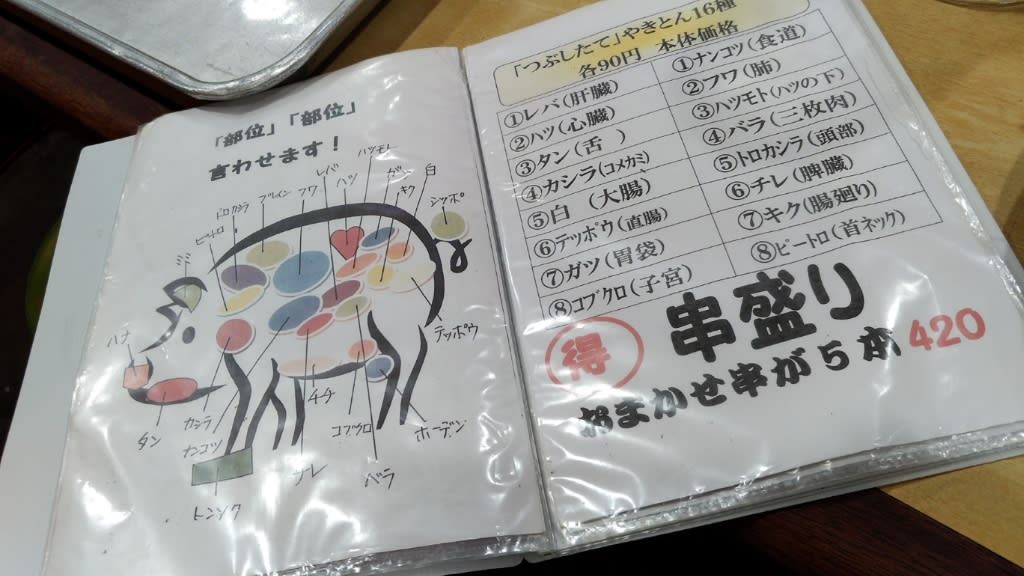 「部位」「部位」
言わせます！
ハツモト
レバ
ハツ
ガツ
キク
白
シッポ
フワ
ブレイン
トロカシラ
ピートロ
ミミ
ハナ
タン
カシラ
ナンコツ
トンソク
チレ
チチ
コブクロ
バラ
ホーデン
テッポウ
「つぶしたて」やきとん16種
各90円　本体価格
①レバ(肝臓)
②ハツ(心臓)
③タン(舌)
④カシラ(コメカミ)
⑤白 (大腸)
⑥テッポウ(直腸)
⑦ガツ(胃袋)
⑧コブクロ(子宮)
①ナンコツ(食道)
②フワ(肺)
③ハツモト(ハツの下)
④バラ(三枚肉)
⑤トロカシラ(頭部)
⑥チレ(脾臓)
⑦キク(腸廻り)
⑧ピートロ(首ネック)
得 串盛り
おまかせ串が5本420